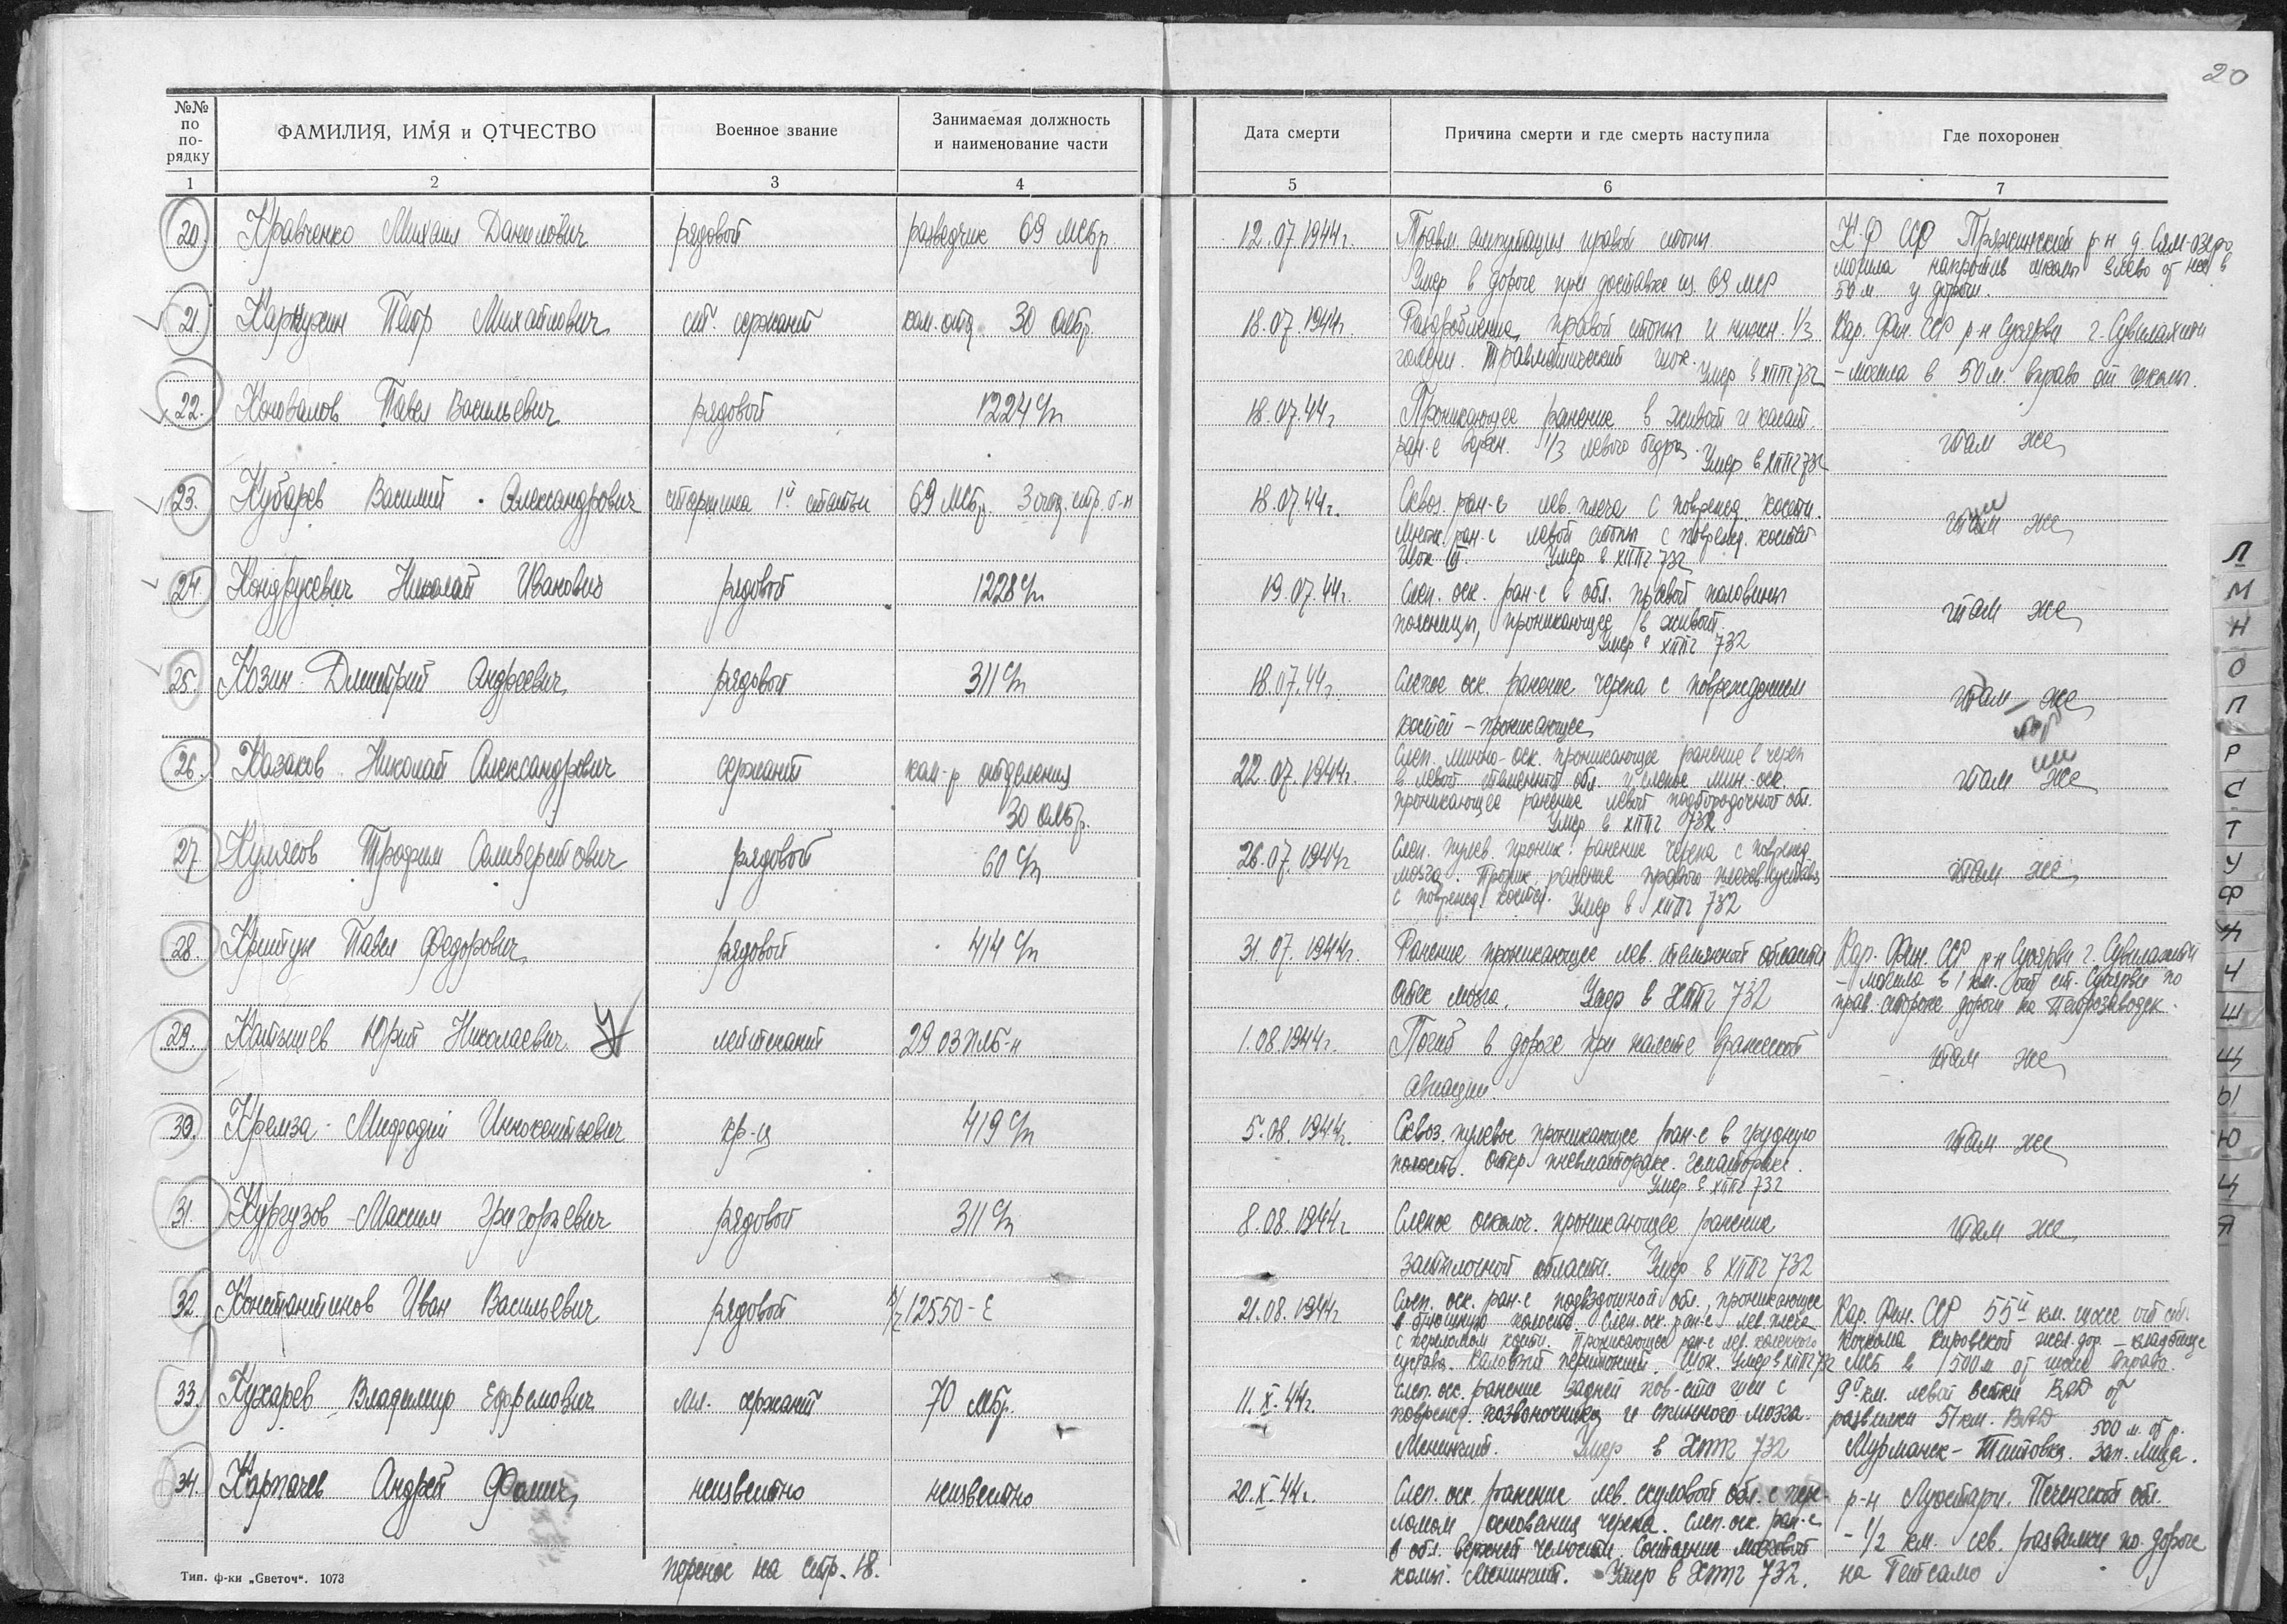 20
№№ по по-рядку
ФАМИЛИЯ, ИМЯ и ОТЧЕСТВО
Военное звание
Занимаемая должность и наименование части
Дата смерти
Причина смерти и где смерть наступила
Где похоронен
1 2 3 4 5 6 7
20. Кравченко Михаил Данилович рядовой разведчик 69 мсбр 12.07.1944г. Травм ампутация правой стопы
Умер в дороге при доставке из 69 мср
К-Ф ССР Пряжинский р-н д. Сям-озеро
могила напротив школы влево от неё в
50 м. у дороги.
21. Петр Михайлович ст. сержант ком. отд. 30 олбр. 18.07.1944г. Раздробление правой стопы и нижн. 1/3
голени. Травматический шок. Умер в хппг 732
Кар. Фин. ССР р-н Суоярви г. Сувилахти
– могила в 50 м. вправо от школы.
22. Коновалов Павел Васильевич рядовой 1224 с/п 18.07.44г. Проникающее ранение в живот и касат.
ран-е верхн. 1/3 левого бедра. Умер в ХППГ 732
там же
23. Кубарев Василий Александрович старшина 1й статьи 69 мсбр. 3 отд. стр. б-н 18.07.44г. Сквоз. ран-е лев. плеча с поврежд. кости.
Множ. ран-е левой стопы с поврежд. костей
Шок III. Умер в ХППГ 732
там же
24. Кондрусевич Николай Иванович рядовой 1228 с/п 19.07.44г. Слеп. оск. ран-е в обл. правой половины
поясницы, проникающее в живот.
Умер в хппг 732
там же
25. Козин Дмитрий Андреевич рядовой 311 с/п 18.07.44г. Слепое оск. ранение черепа с повреждением
костей – проникающее
там – же
26. Казаков Николай Александрович сержант ком-р отделения
30 олбр. 22.07.1944г. Слеп. минно-оск. проникающее ранение в череп
в левой обл. и слепое мин-оск.
проникающее ранение левой подбородочной обл.
Умер в хппг 732.
там же
27. Кулясов Трофим Селиверстович рядовой 60 с/п 26.07.1944г Слеп. пулев. проник. ранение черепа с поврежд.
мозга. ранение правого плечев. сустава
с поврежд. костей. Умер в хппг 732
там же
28. Криштун Павел Федорович рядовой 414 с/п 31.07.1944г. Ранение проникающее лев. области
мозга. Умер в ХППГ 732
Кар. Фин. ССР р-н Суоярви г. Сувилахти
– могила в 1 км. от ст. Суоярви по
прав. стороне дороги на Петрозаводск.
29. Катышев Юрий Николаевич лейтенант 29 озплб-н 1.08.1944г. Погиб в дороге при налете вражеской
авиации.
там же
30. Кремза Мифодий Иннокентьевич кр-ц 419 с/п 5.08.1944г. Сквоз. пулевое проникающее ран-е в грудную
полость. Откр. пневматоракс. Гематоракс.
Умер в хппг 732
там же
31. Кургузов Максим Григорьевич рядовой 311 с/п 8.08.1944г Слепое осколоч. проникающее ранение
затылочной области. Умер в хппг 732
там же
32. Константинов Иван Васильевич рядовой п/п 12550-Е 21.08.1944г Слеп. оск. ран-е подвздошной обл., проникающее
в брюшную полость. Слеп. оск. ран-е лев. плеча
с переломом кости. Проникающее ран-е лев. коленного
сустава. Каловый перитонит. Шок. Умер в хппг 732
Кар. Фин. ССР 55й км. шоссе от ст.
Кочкома Кировской жел. дор. – кладбище
мсб в 500 м от шоссе вправо.
33. Кухарев Владимир Ефремович мл. сержант 70 мсбр. 11.X.44г. Слеп. оск. ранение задней пов-сти шеи с
поврежд. позвоночника и спинного мозга.
Менингит. Умер в Хппг 732
9й км. левой ветки ВАД от
развилки 51 км. ВАД 500 м. от р.
Мурманск – Титовка. Зап. Лица.
34. Карпачев Андрей Фомич неизвестно неизвестно 20.X.44г. Слеп. оск. ранение лев. скуловой обл. с пере-
ломом основания черепа. Слеп. оск. ран-е
в обл. верхней челюсти. мозговой
Менингит. Умер в Хппг 732.
р-н Луостари. Печенгской обл.
– 1/2 км. сев. развилки по дороге
на Петсамо
перенос на стр. 18.
Тип. ф-ки „Светоч“. 1073
Л
М
Н
О
П
Р
С
Т
У
Ф
Х
Ч
Ш
Щ
Ы
Ю
Ц
Я